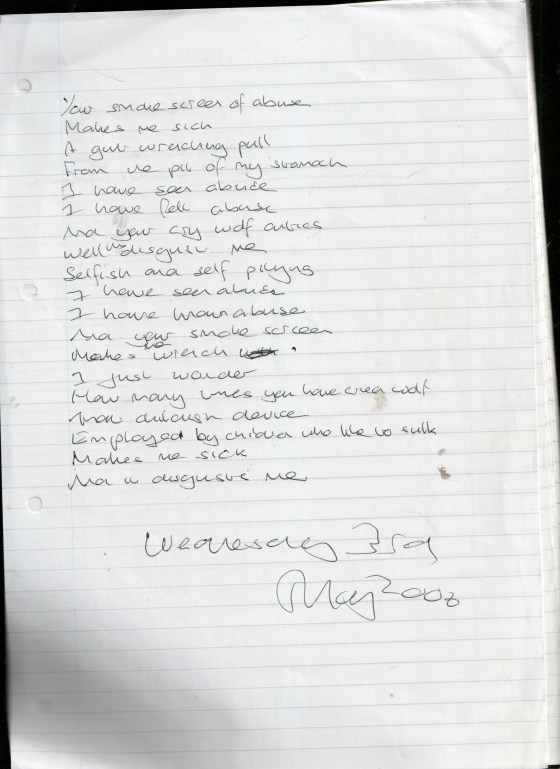 Your smoke screen of abuse
Makes me sick
A gut wrenching pull
From the pit of my stomach
I have seen abuse
I have felt abuse
And your cry wolf antics
Well disgust me
Selfish and self pitying
I have seen abuse
I have known abuse
And your smoke screen
Makes me wrench
I just wonder
How many times you have cried wolf
That childish device
Employed by children who like to sulk
Makes me sick
And it disgusts me
Wednesday 3rd
May 2006